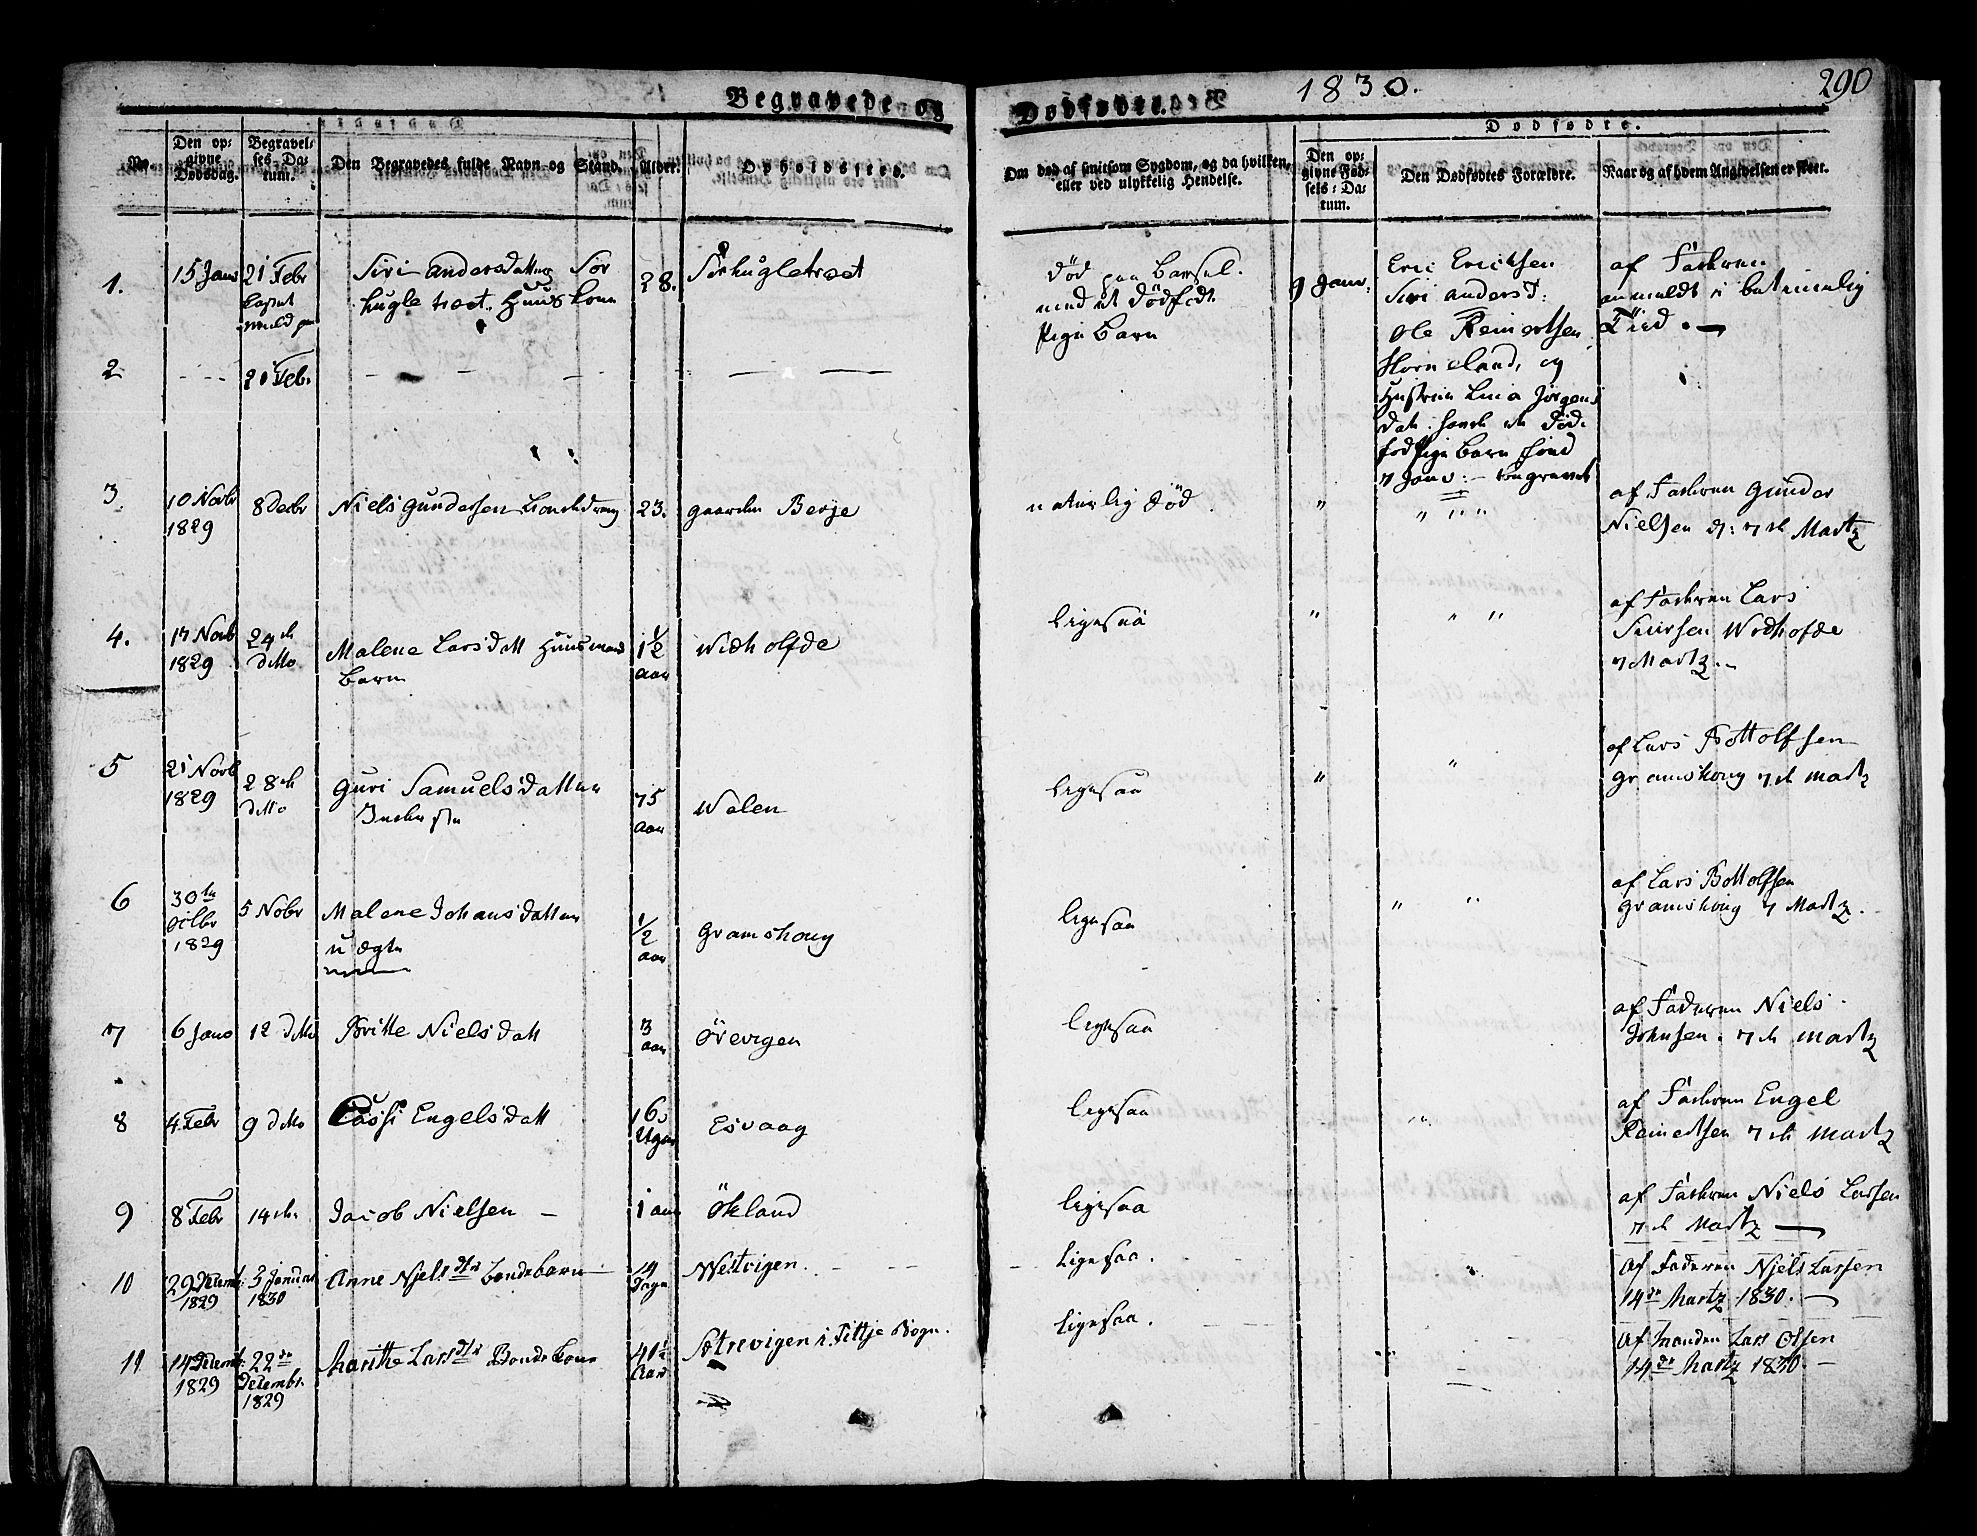 Begravede og Dødfødte. 1830. 290
Dødfødte.
No.
Den op-
givne
Dødsdag.
Begravel-
ses Da-
tum.
Den Begravedes fulde Navn og Stand.
Alder.
Opholdssted.
Om død af smitsom Sygdom, og da hvilken,
eller ved ulykkelig Hendelse.
Den op-
givne Fød-
sels-Da-
tum.
Den Dødfødtes Forældre.
Naar og af hvem Angivelsen er skeet.
1. 15 Janr 21 Febr
Siri Andersdatter Sør
hugletræet. Huuskone
28. Sørhugletræet
død paa Barsel.
med et Dødfødt
Pige Barn
9 Janr.
Eric Ericksen
Siri Andersd:
af Faderen
anmeldt i betimelig
Tiid.
2 21 Febr
Ole Reinertsen
Horneland, og
Hustrue Jørgens
Dødfød Pige Barn
7 Janr:
3. 10 Novbr
1829
8 Decbr
Niels Gundersen
23. gaarden Berje
naturlig Død.
af Faderen Gunder
Nielsen d: 7de Martz
4. 17 Novb
1829
24de
ditto
Malene Larsdatt Huusmands
Barn
1 1/2
aar
Widholfde
ligesaa
af Faderen Lars
7 Martz.
5 21 Novb
1829
28de
ditto
Guri Samuelsdatter
75
aar
Walen
ligesaa
af Lars Bottolfsen
Gramshoug 7de Martz
6 30te
1829
5 Nobr
Malene Johansdatter
uægte
1/2
aar
Gramshoug
ligesaa
af Lars Bottolfsen
Gramshoug 7 Martz.
7 6 Janr 12 ditto Britte Nielsdatt
3
aar
Örevigen
ligesaa
af Faderen Niels
Johnsen. 7de Martz
8 4 Febr 9 ditto Engelsdatt
16
Uger
Esvaag
ligesaa
af Faderen Engel
Reinertsen 7de Martz
9 8 Febr 14de Jacob Nielsen 1 aar Ökland
ligesaa
af Faderen Niels Larsen
7de Martz
10 29 Decemb:
1829
3 Januar
1830
Anne Njelsdtr Bondebarn
19
Dage
Westvigen.
Ligesaa.
Af Faderen Njels Larsen
14de Martz 1830.
11 14 Decemb:
1829
22de
Decembr.
1829
Marithe Larsdtr Bondekone
41 1/2
Aar
Sætrevigen i Fittje Sogn.
Ligesaa.
Af Manden Lars Olsen
14de Martz 1830.